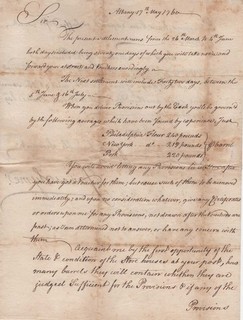 Albany 17th May 1760
Sir
The present settlement runs from the 24th March to 4th June
both days inclusive being seventy two days of which you will take notice, and
forward your accounts and Vouchers accordingly.
The Next settlement will include Forty two days, between the
5th June & 16th July.
When you issue Provisions out by the Cask you'll be governed by
the following averages which have been found by experience, Just
Philadelphia Flour 220 pounds
New York do 217 pounds
Pork 220 pounds
If you omit issuing any Provisions
you have got a Voucher for them, but cause such of them to be
immediately, and upon no consideration whatever, give any
or orders upon you for any Provisions, as
past, as I am determined not to answer, or have any concern with
them
Acquaint me by the first opportunity of the
State & condition of the Store houses at your post, how
many barrels they will contain whether they are
judged Sufficient for the Provisions & if any of the
Provisions